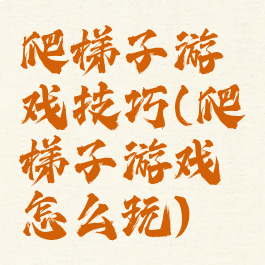 爬梯子游
戏技巧(爬
梯子游戏
怎么玩)